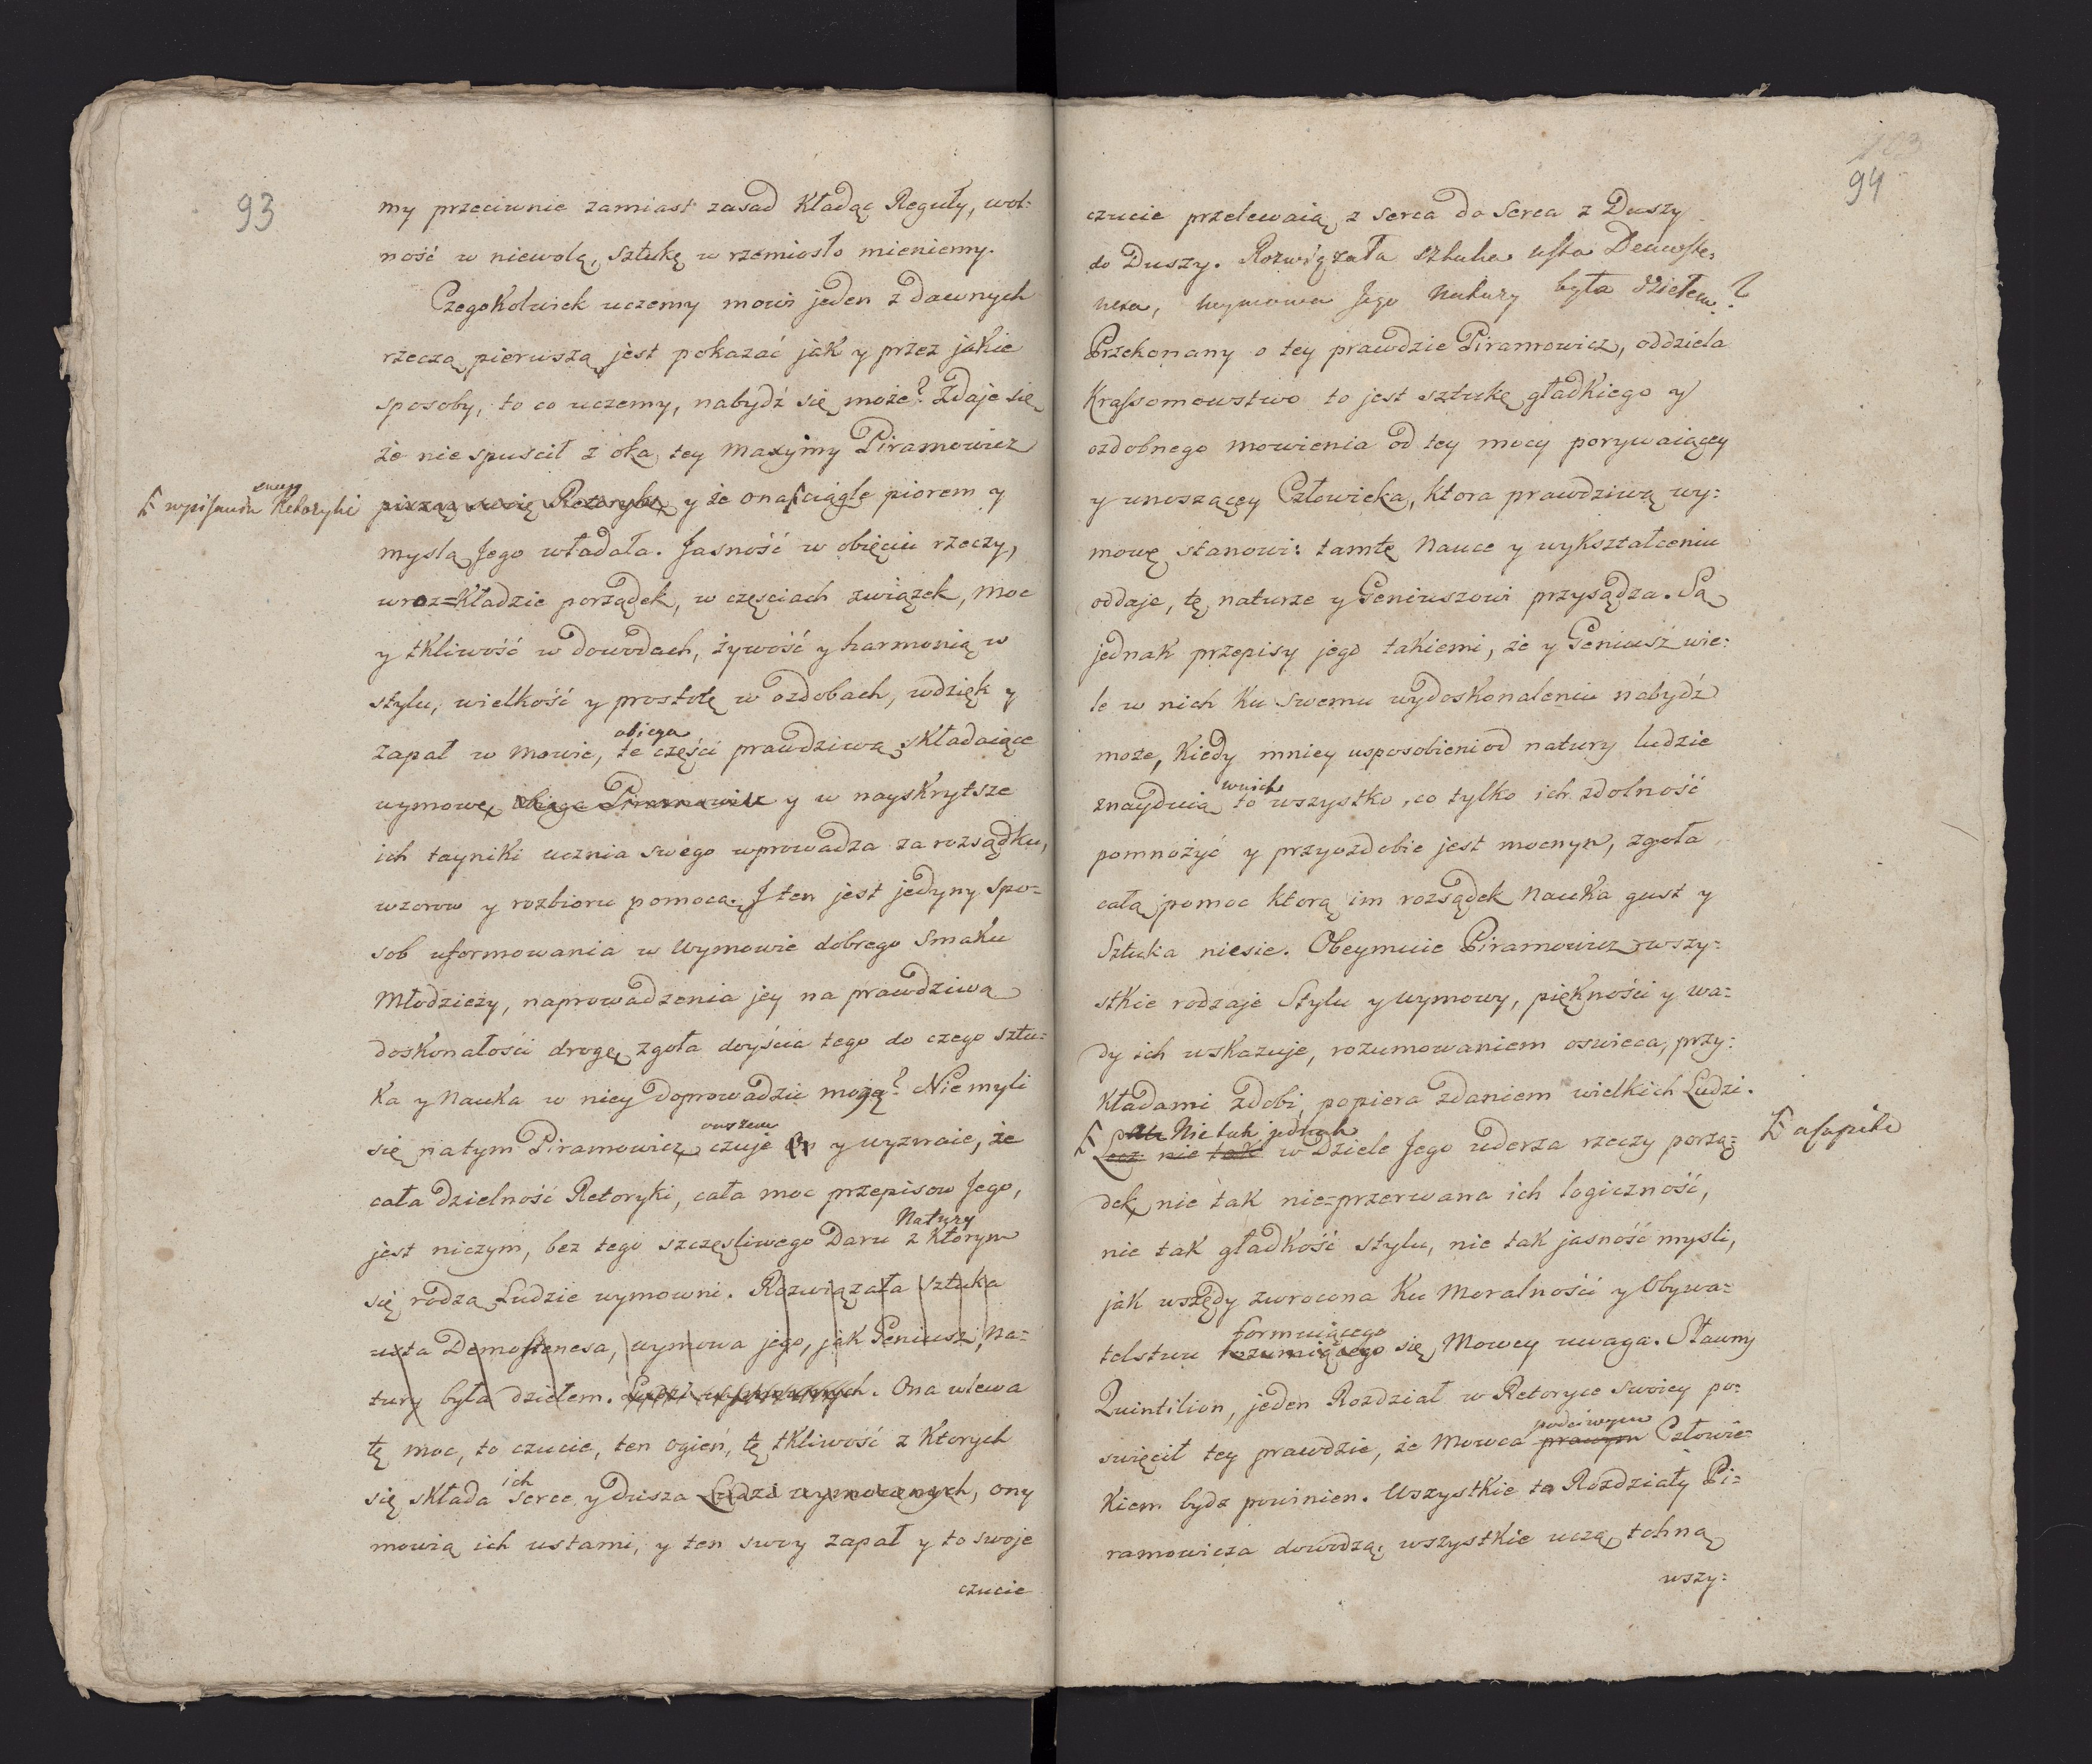 93
my przeciwnie zamiast zasad Kładąc Reguły, wol:
ność w niewolą, sztukę w rzemiosło mieniemy.
CzegoKolwiek uczemy mowi jeden z dawnych
rzeczą pierwszą jest pokazać jak y przez jakie
sposoby, to co uczemy, nabydź się może? Zdaje się
że nie spuscił z oka tey maxymy Piramowicz
swey
w pisaniu Retoryki pisząc swoię Retorykę y że ona ciągle piorem y
myslą Jego władała. Jasność w obięciu rzeczy,
w roz=Kładzie porządek, w częściach związek, moc
y tkliwość w dowodach, żywość y harmonią w
stylu, wielkość y prostotę w ozdobach, wdzięk y
obiega
zapał w mowie, te części prawdziwą składaiące
wymowę, obiega Piramowicz y w nayskrytsze
ich tayniki ucznia swego wprowadza za rozsądku,
wzorow y rozbioru pomocą. J ten jest jedyny spo=
sob uformowania w wymowie dobrego smaku
Młodzieży, naprowadzenia jey na prawdziwą
doskonałości drogę, zgoła doyścia tego do czego sztu=
ka y Nauka w niey doprowadzić mogą? Nie myli
owszem
się na tym Piramowicz, czuje On y wyznaie, że
cała dzielność Retoryki, cała moc przepisow Jego,
Natury
jest niczym, bez tego szczęsliwego Daru z Ktorym
się rodzą Ludzie wymowni. Rozwiązała Sztuka
usta Demostenesa, wymowa jego, jak Geniusz, Na=
tury była dziełem. Ludzi wymownych. Ona wlewa
tę moc, to czucie, ten ogień, tę tkliwość z Ktorych
ich
się składa serce y dusza Ludzi wymownych, ony
mowią ich ustami, y ten swoy zapał y to swoje
czucie
103
94
czucie przelewaią z serca do serca z Duszy
do Duszy. Rozwiązała sztuka usta Demoste,
nesa, wymowa Jego Natury była dziełem?
Przekonany o tey prawdzie Piramowicz, oddziela
Krassomowstwo to jest sztukę gładkiego y
ozdobnego mowienia od tey mocy porywaiącey
y unoszącey Człowieka, Ktora prawdziwą wy:
mowę stanowi: tamtę Nauce y wykształceniu
oddaje, tę naturze y Geniuszowi przysądza. Są
jednak przepisy jego takiemi, że y Geniusz wie:
le w nich Ku swemu wydoskonaleniu nabydź
może, Kiedy mniey usposobieni od natury ludzie
w nich
znayduią to wszystko, co tylko ich zdolność
pomnożyć y przyozdobić jest mocnym, zgoła
całą pomoc Ktorą im rozsądek Nauka gust y
Sztuka niesie. Obeymuie Piramowicz wszy=
stkie rodzaje Stylu y wymowy, piękności y wa=
dy ich wskazuje, rozumowaniem oswieca, przy:
Kładami zdobi, popiera zdaniem wielkich Ludzi.
Ale Nie tak jednak
Lecz nie tak w Dziele Jego uderza rzeczy porzą= a capite
dek, nie tak nie=przerwana ich logiczność,
nie tak gładkość stylu, nie tak jasność mysli,
jak wszędy zwrocona Ku Moralności y Obywa=
formuiącego
telstwu rozumiącego się Mowcy uwaga. Sławny
Quintilion, jeden Rozdział w Retoryce swoiey po:
poćciwym
swięcił tey prawdzie, że Mowca prawym Człowie=
Kiem bydz powinien. Wszystkie to Rozdziały Pi=
ramowicza dowodzą, wszystkie uczą, tchną
wszy: